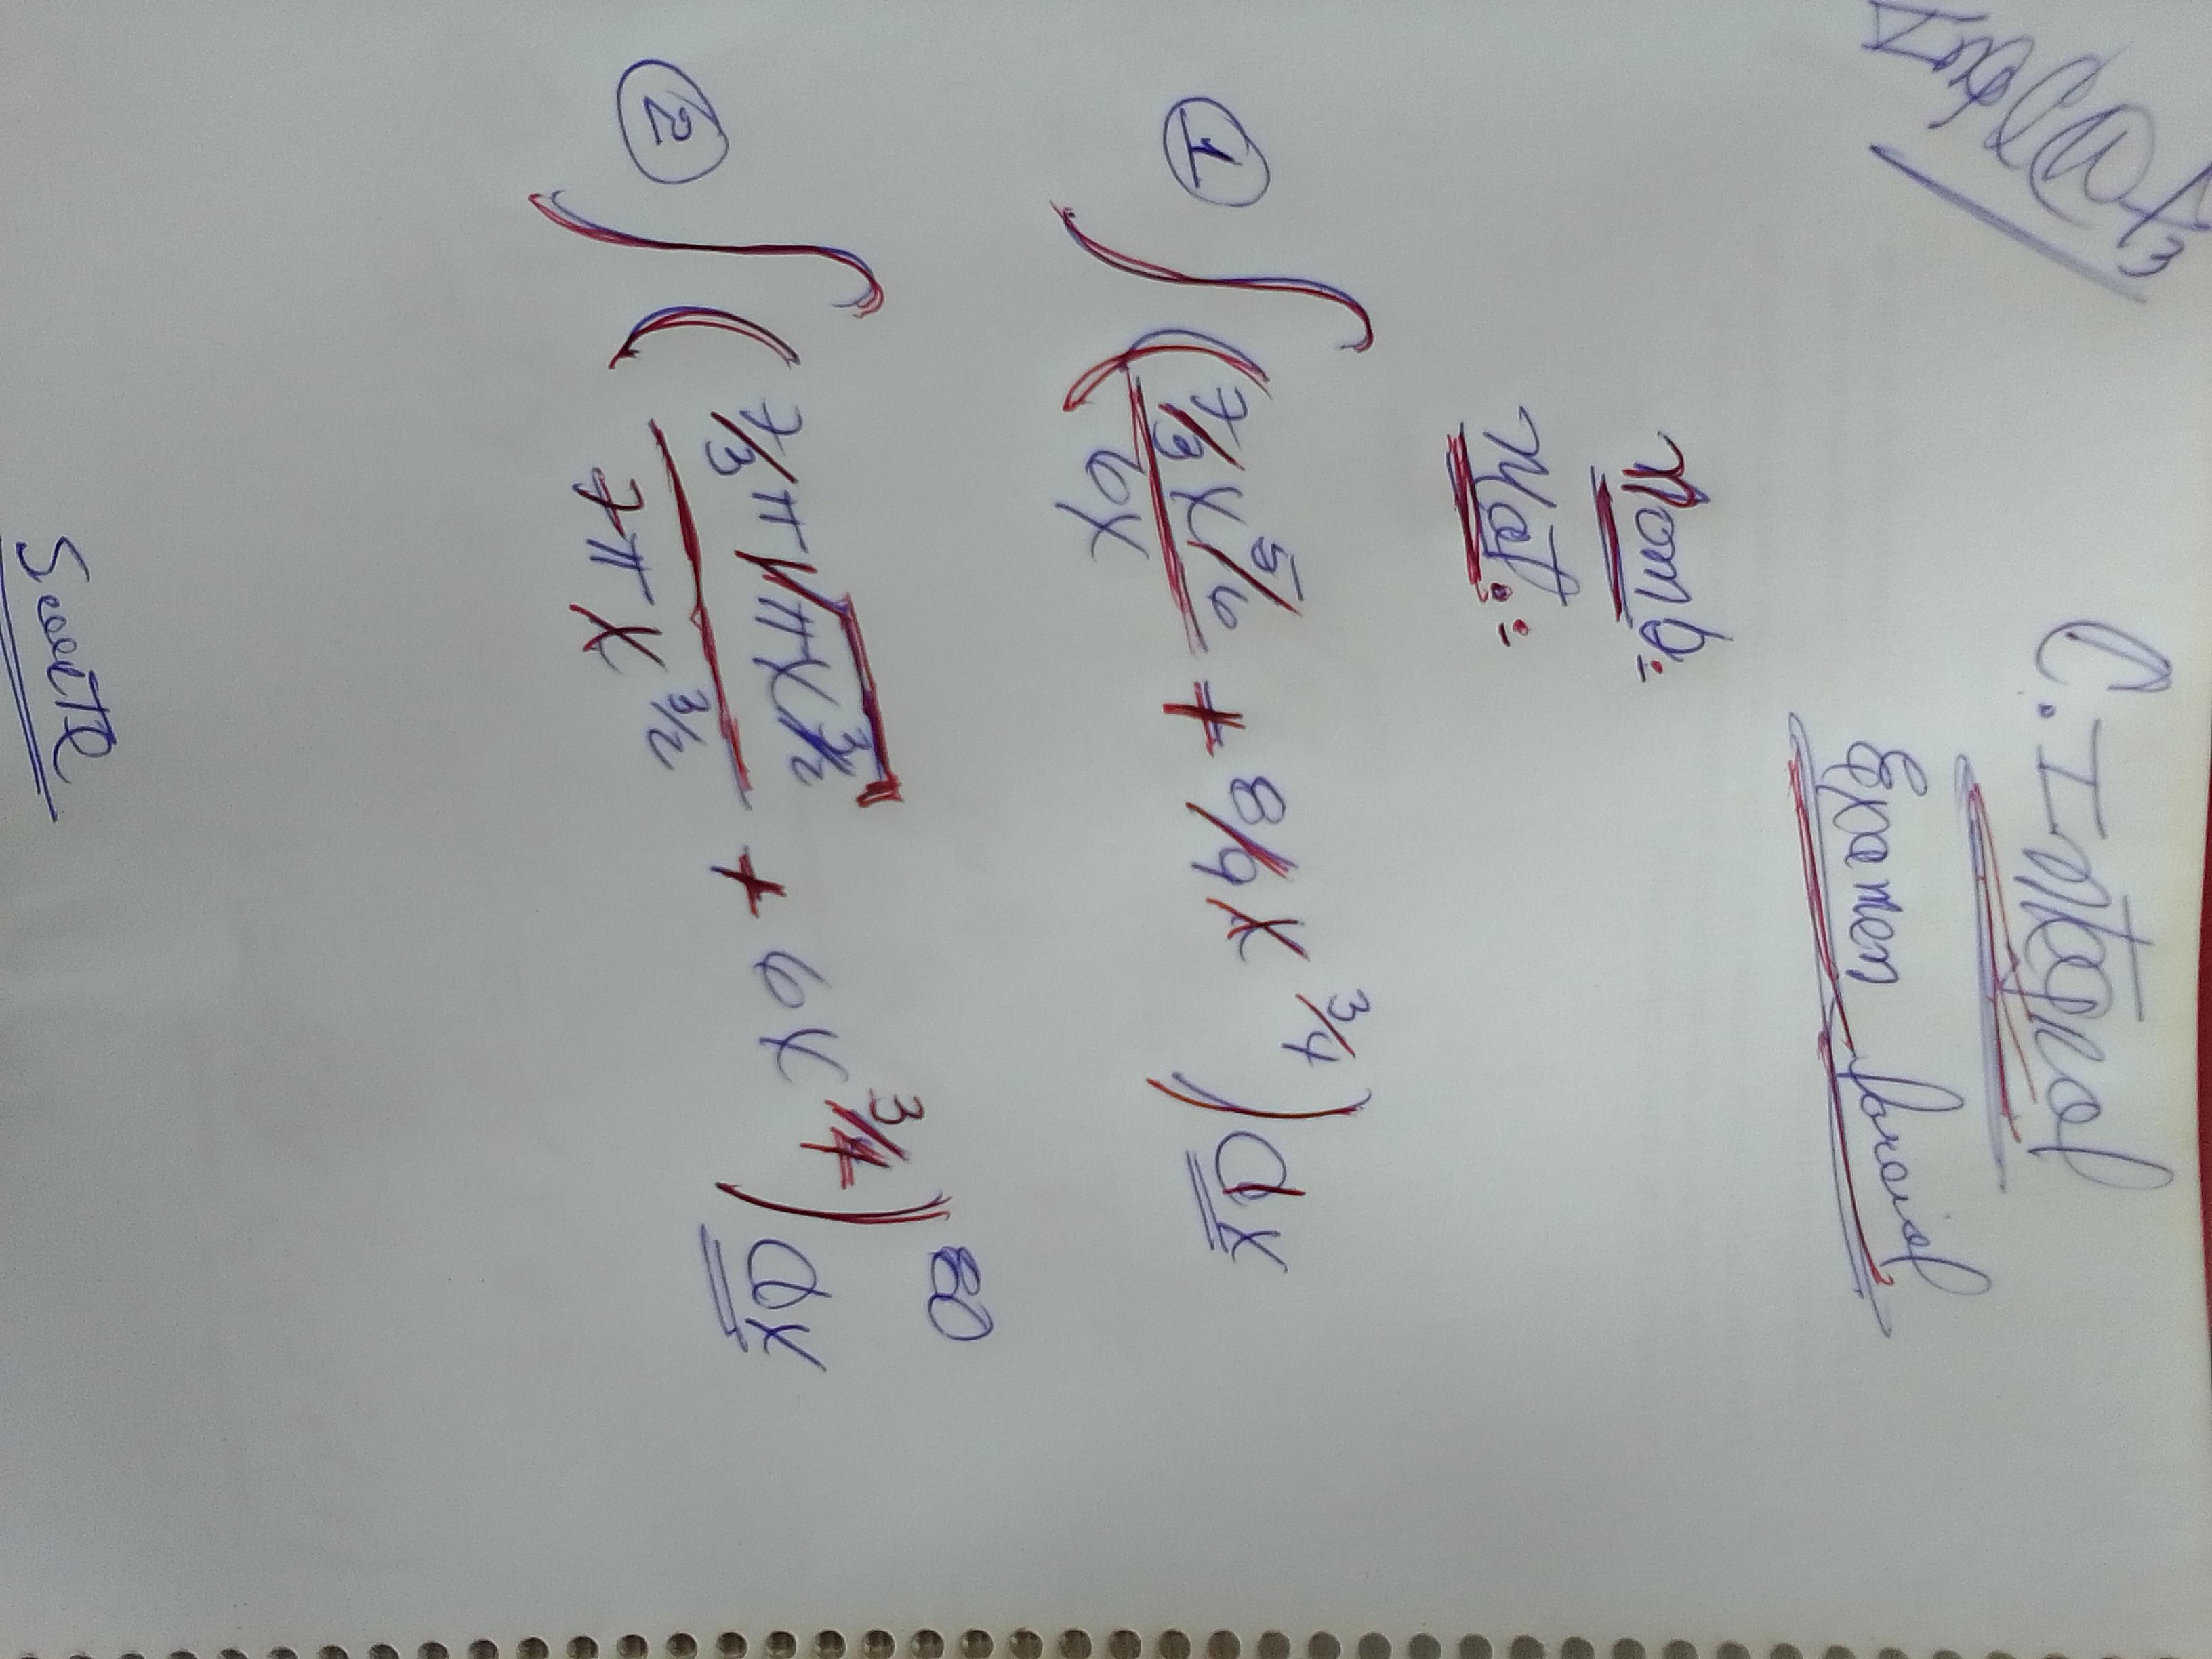 C. Integral
Examen parcial
Nomb:
Mat:
① ∫ ( 7/3 x^5/6 / 6x + 8/9 x^3/4 ) dx
② ∫ ( 7/3 π √πx^3/2 / 7π x^3/2 + 6x^3/4 )^80 dx